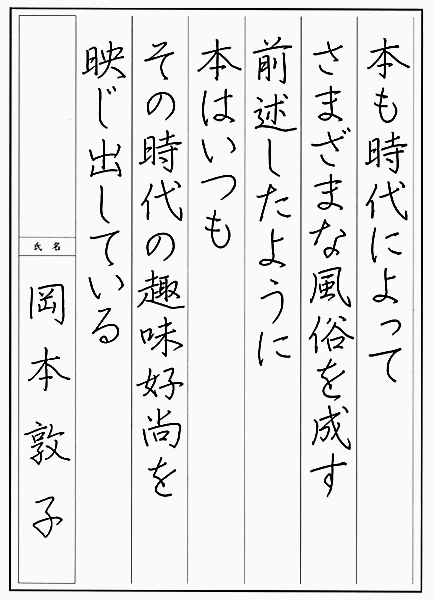 本も時代によって
さまざまな風俗を成す
前述したように
本はいつも
その時代の趣味好尚を
映じ出している
氏名
岡本敦子